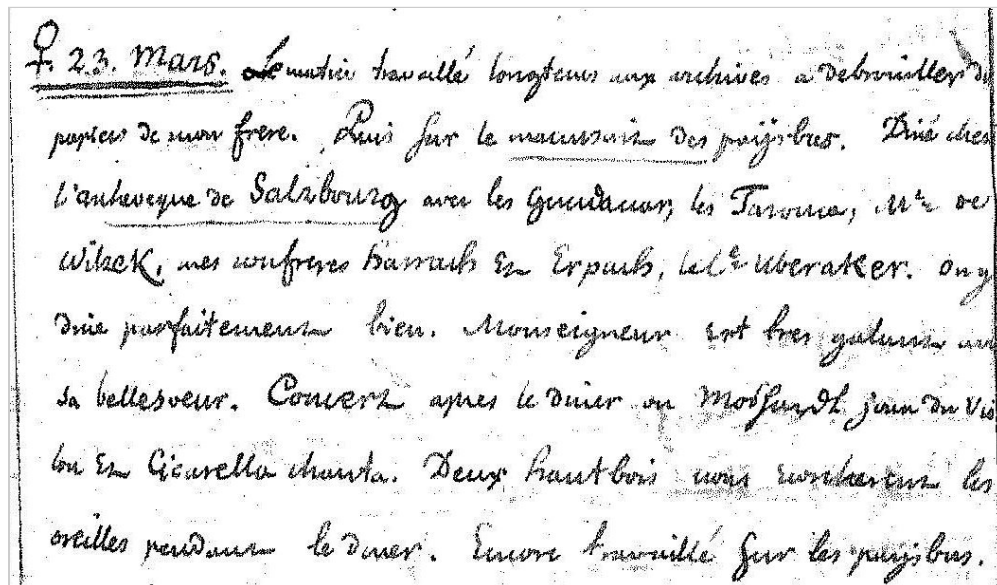 ♀. 23. Mars. Le matin travaillé longtems aux archives a debrouiller du
papiers de mon frere. Puis sur le manuscrit des païjsbas. Diné chez
l'archeveque de Salzbourg avec les Gundacar, les Tarouca, Mr de
Wilzek, mes confreres Harrach et Erpach, le Ce Uberaker. On y
dine parfaitement bien. Monseigneur est tres galant
sa bellesoeur. Concert apres le diner ou Moshardt joua du Vio
lon et Cicarella chanta. Deux hautbois nous ecorcherent les
oreilles pendant le diner. Encore travaillé sur les païjsbas.